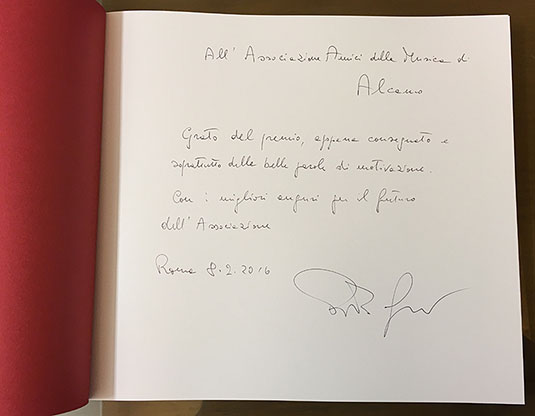 All' Associazione Amici della Musica di
Alcamo
Grato del premio, appena consegnato e
sopratutto delle belle parole di motivazione.
Con i migliori auguri per il futuro
dell' Associazione
Roma 8.2.2016